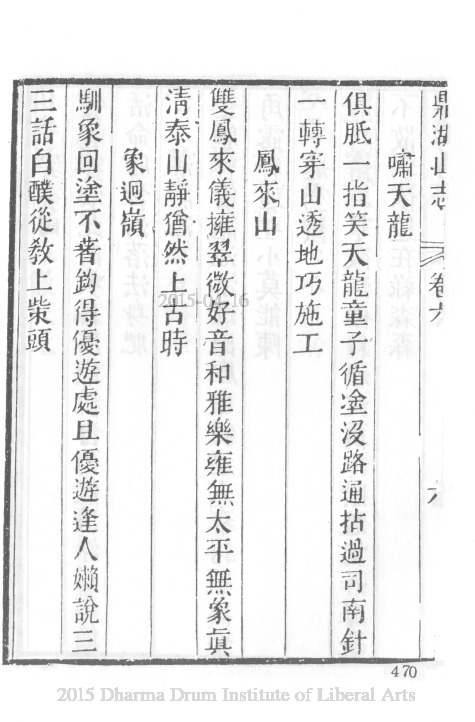 鼎湖山志 卷六 六
嘯天龍
俱胝一指笑天龍童子循塗沒路通拈過司南針
一轉穿山透地巧施工
鳳來山
雙鳳來儀擁翠微好音和雅樂雍無太平無象眞
淸泰山靜猶然上古時
象迴嶺
馴象回塗不著鉤得優遊處且優遊逢人嬾說三
三話白醭從敎上柴頭
2015-04-16
470
2015 Dharma Drum Institute of Liberal Arts